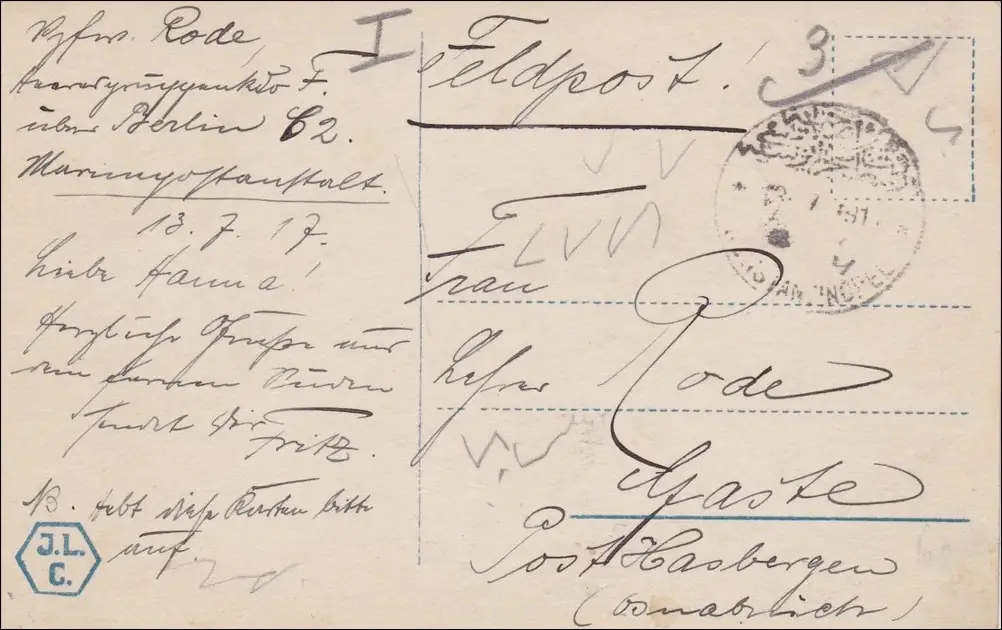 Vzfw. Rode,
Heeresgruppenkdo F.
über Berlin C2.
Marinepostanstalt.
13.7.17.
Liebe Hanna!
Herzliche Grüße aus
dem fernen Süden
sendet Dir
Fritz.
NB. Hebt diese Karten bitte
auf.
J.L.
C.
I
Feldpost!
3
Frau
Lehrer Rode
Gaste
Post Hasbergen
(Osnabrück)